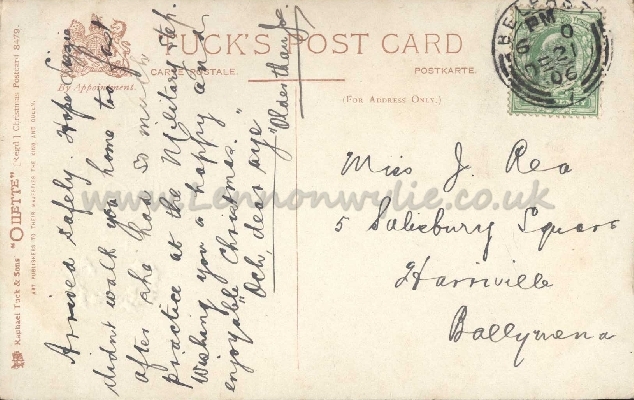 TUCK'S POST CARD
CARTE POSTALE.
POSTKARTE.
By Appointment.
(FOR ADDRESS ONLY.)
Raphael Tuck & Sons' "OILETTE" [Regd.] Christmas Postcard 8479.
ART PUBLISHERS TO THEIR MAJESTIES THE KING AND QUEEN.
BELFAST
PM
DE 21
06
Arrived safely. Hope Lizzie
didn't walk you home to fast
after she has so much
practice at the Military step.
Wishing you a happy and
enjoyable Christmas.
"Och, dear aye"
"Older than Joe"
Miss J. Rea
5 Salisbury Square
Harryville
Ballymena
www.Lennonwylie.co.uk